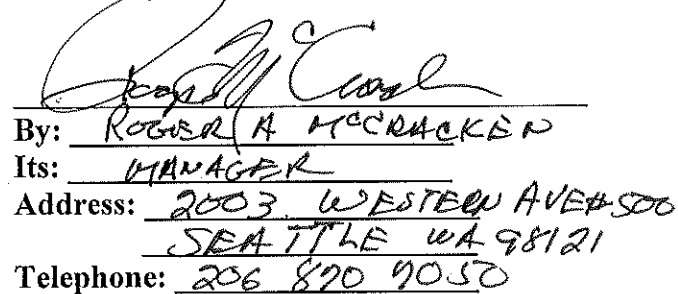 Roger A McCracken
By: ROGER A McCRACKEN
Its: MANAGER
Address: 2003 WESTERN AVE #500
SEATTLE WA 98121
Telephone: 206 890 7050